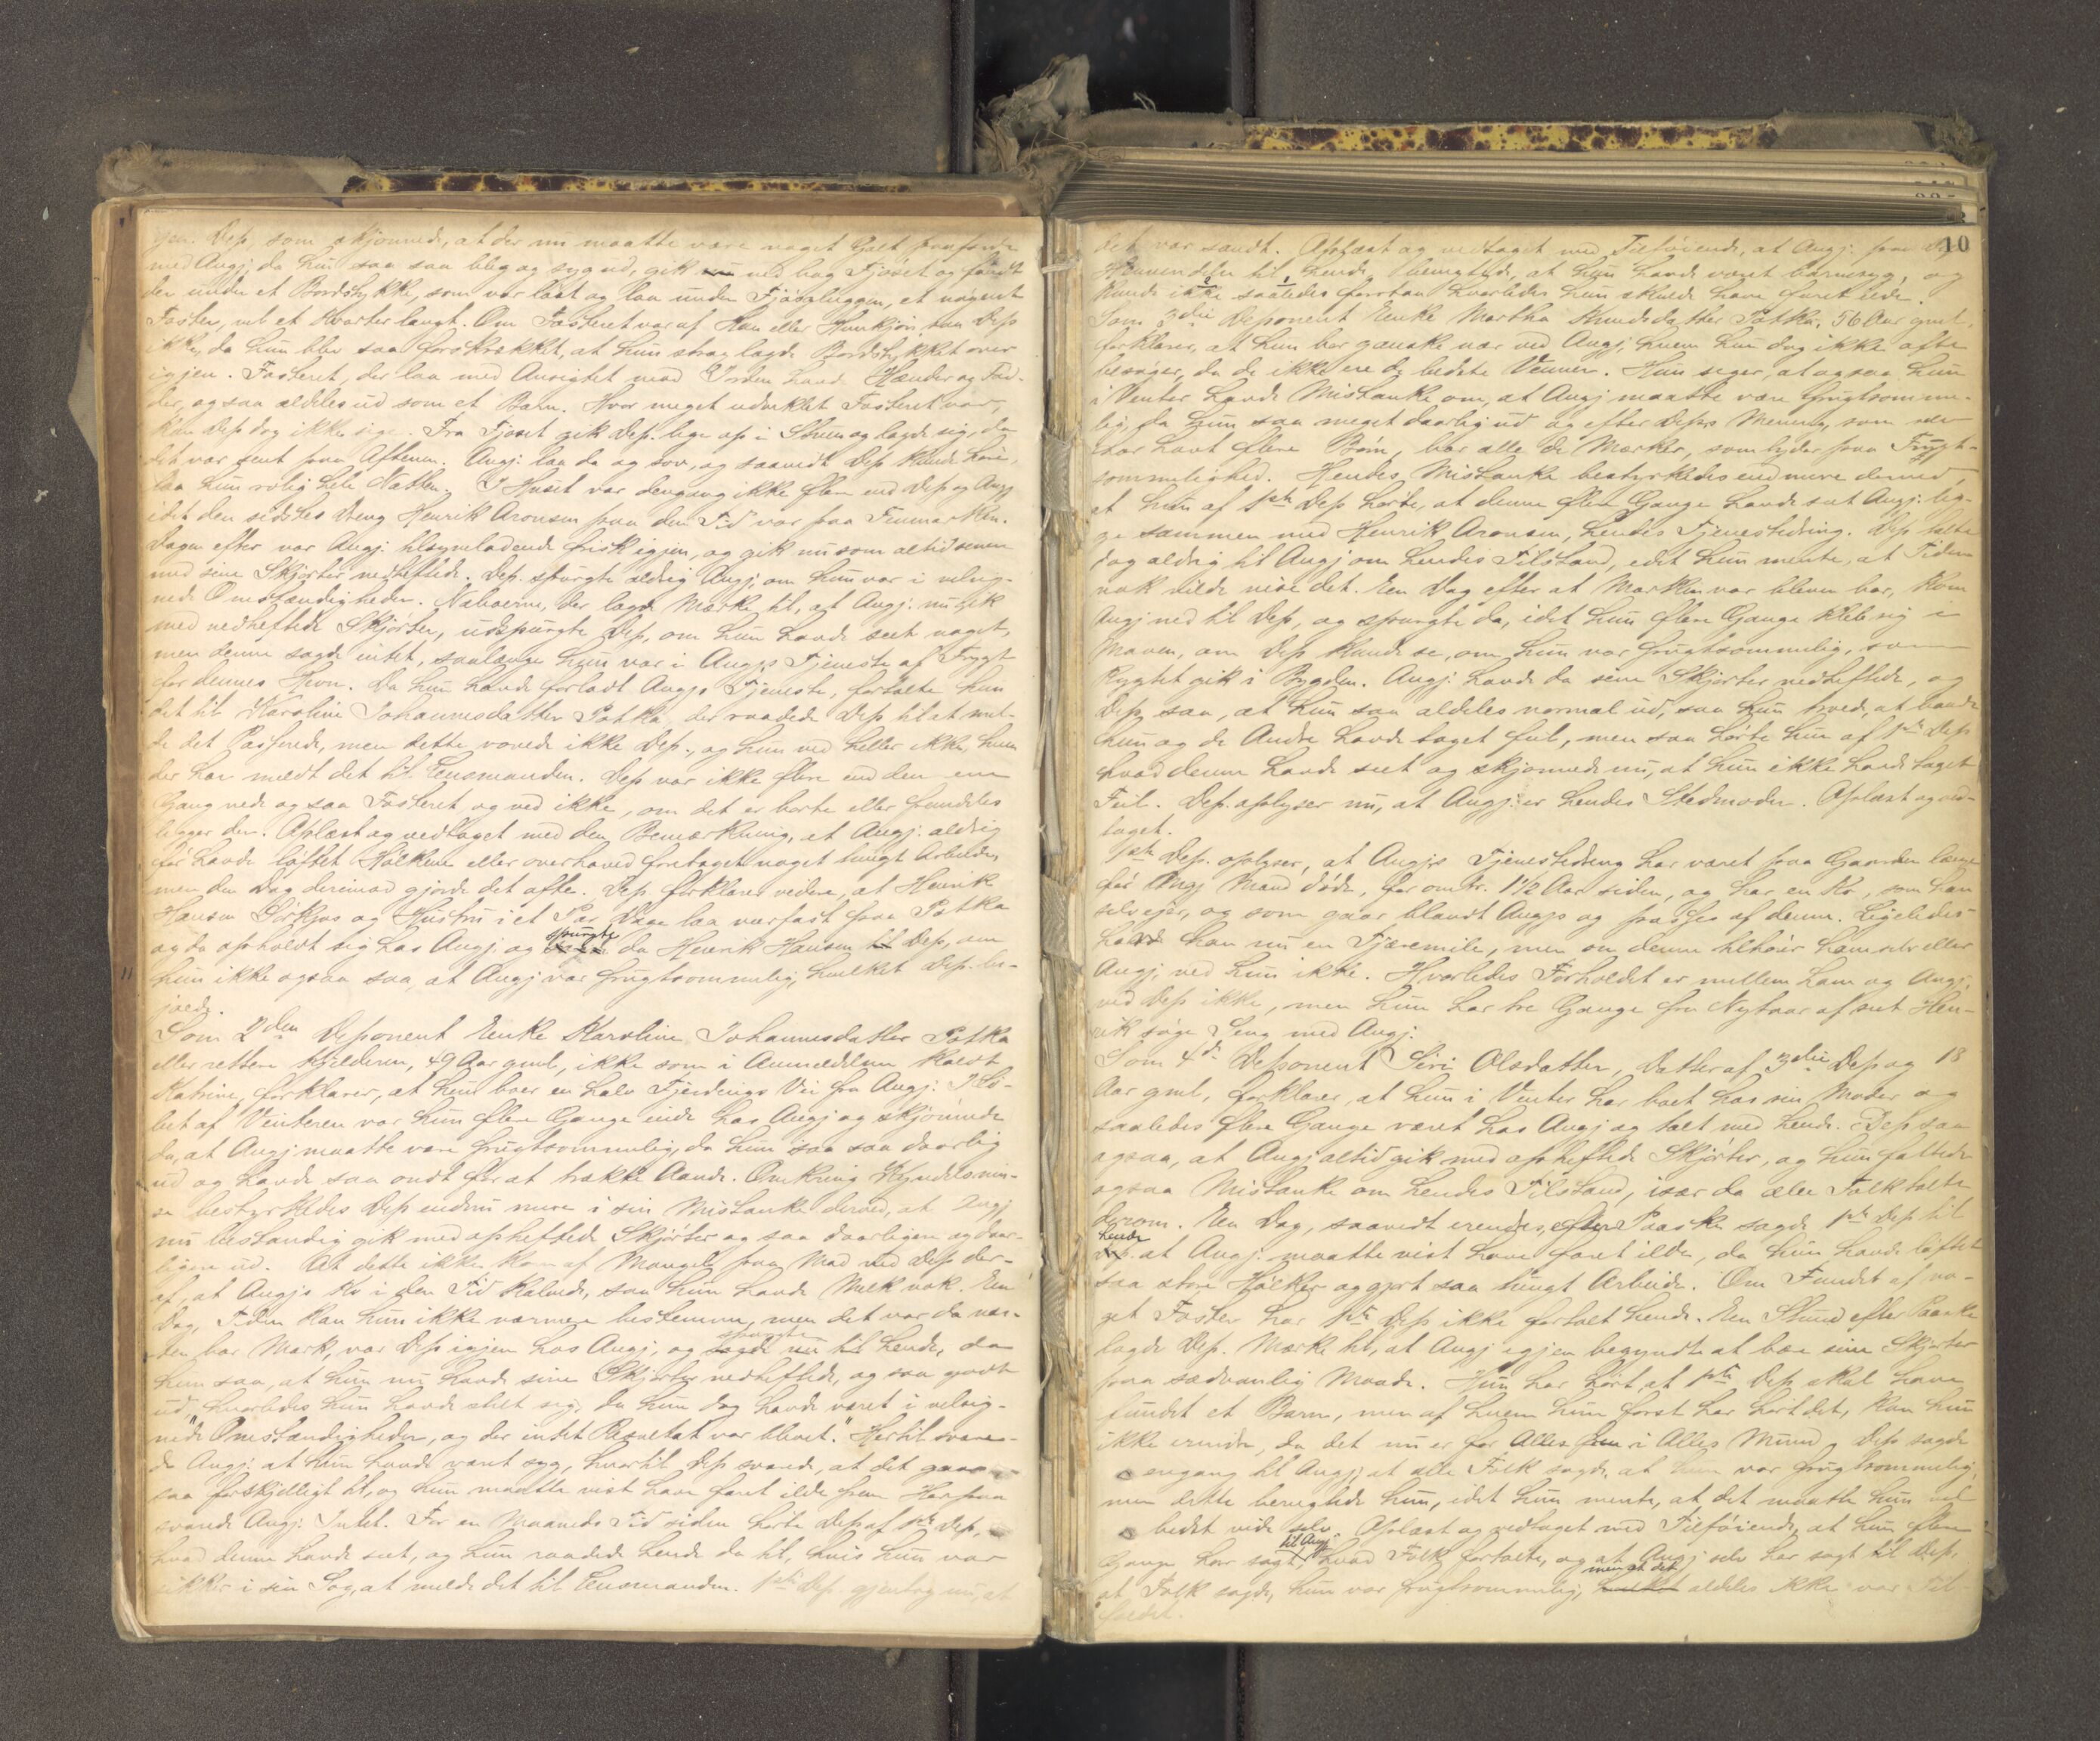 igjen. Dep, som skjønnede, at der nu maatte være noget Galt paafærde
med Angj, da hun saa saa bleg og syg ud, gik ned bag Fjøset og fandt
der under et Bordstykke, som var løst og laa under Fjøsgluggen, et nøgent
Foster, vel et Kvarter langt. Om Fosteret var af Han eller Hunkjøn saa Dep
ikke, da hun blev saa forskrækket, at hun strax lagde Bordstykket over
igjen. Fosteret, der laa med Ansigtet mod Jorden havde Hænder og Fød-
der, og saa aldeles ud som et Barn. Hvor meget udviklet Fosteret var,
kan Dep dog ikke sige. Fra Fjøset gik Dep. lige op i Stuen og lagde sig, da
det var sent paa Aftenen. Angj. laa da og sov, og saavidt Dep kunde høre,
laa hun rolig hele Natten. I Huset var dengang ikke flere end Dep og Angj
idet den sidstes Dreng Henrik Aronsen paa den Tid var paa Finmarken.
Dagen efter var Angj. tilsyneladende frisk igjen, og gik nu som altid senere
med sine Skjørter nedheftede. Dep. spurgte aldrig Angj, om hun var i velsig-
nede Omstændigheder. Naboerne, der lagde Mærke til, at Angj. nu gik
med nedheftede Skjørter, udspurgte Dep, om hun havde seet noget,
men denne sagde intet, saalænge hun var i Angjs Tjeneste af Frygt
for dennes Hevn. Da hun havde forladt Angjs Tjeneste, fortalte hun
det til Karoline Johannesdatter Potka, der raadede Dep til at mel-
de det Passerede, men dette vovede ikke Dep., og hun ved heller ikke, hvem
der har meldt det til Lensmanden. Dep var ikke flere end den ene
Gang nede og saa Fosteret og ved ikke, om det er borte eller fremdeles
ligger der. Oplæst og vedtaget med den Bemærkning, at Angj. aldrig
før havde løftet Holkene eller overhoved foretaget noget tungt Arbeide,
men den Dag derimod gjorde det ofte. Dep forklarer videre, at Henrik
Hansen og Hustru i et Par Dage laa værfast paa Potka
og da opholdt sig hos Angj. og spurgte da Henrik Hansen til Dep, om
hun ikke ogsaa saa, at Angj var frugtsommelig, hvilket Dep. be-
jaede.
Som 2den Deponent Enke Karoline Johannesdatter Potka
eller rettere Kjelderen, 49 Aar gml, ikke som i Anmeldelsen kaldt
Katrine, forklarer, at hun boer en halv Fjerdings Vei fra Angj. I Lø-
bet af Vinteren var hun flere Gange inde hos Angj og skjønnede
da, at Angj maatte være frugtsommelig, da hun saa saa daarlig
ud og havde saa ondt for at trække Aande. Omkring Kyndelsmes-
se bestyrkedes Dep endnu mere i sin Mistanke derved, at Angj
nu bestandig gik med opheftede Skjørter og saa daarligere og daar-
ligere ud. At dette ikke kom af Mangel paa Mad ved Dep der-
af, at Angjs Ko i den Tid kalvede, saa hun havde Melk nok. En
Dag, Tiden kan hun ikke nærmere bestemme, men det var da næs-
ten bar Mark, var Dep igjen hos Angj, og spurgte sagde nu til hende, da
hun saa, at hun nu havde sine Skjørter nedheftede, og saa godt
ud, "hvorledes hun havde stelt sig, da hun dog havde været i velsig-
nede Omstændigheder, og der intet Resultat var blevet." Hertil svare-
de Angj. at hun havde været syg, hvortil Dep svarede, at det gaar
saa forskjelligt til, og hun maatte vist have faret ilde frem Herpaa
svarede Angj. Intet. For en Maaneds Tid siden hørte Dep af 1ste Dep,
hvad denne havde seet, og hun raadede hende da til, hvis hun var
sikker i sin Sag, at melde det til Lensmanden. 1ste Dep. gjentog nu, at
10
det var sandt. Oplæst og vedtaget med Tilføiende, at Angj. paa Dep
Henvendelse til hende benegtede, at hun havde været barnesyg, og
kunde ikke saaledes forstaa hvorledes hun skulde have faret ilde.
Som 3die Deponent Enke Martha Knudsdatter Potka, 56 Aar gml,
forklarer, at hun bor ganske nær ved Angj, hvem hun dog ikke ofte
besøger, da de ikke ere de bedste Venner. Hun siger, at ogsaa hun
i Vinter havde Mistanke om, at Angj maatte være frugtsomme-
lig, da hun saa meget daarlig ud og efter Deps Mening, som selv
har havt flere Børn, bar alle de Mærker, som tyder paa Frugt-
sommelighed. Hendes Mistanke bestyrkedes endmere derved,
at hun af 1ste Dep hørte, at denne flere Gange havde seet Angj. lig-
ge sammen med Henrik Aronsen, hendes Tjenestedreng. Dep talte
dog aldrig til Angj om hendes Tilstand, idet hun mente, at Tiden
nok vilde vise det. En Dag efter at Marken var bleven bar, kom
Angj ned til Dep, og spurgte da, idet hun flere Gange klæb sig i
Maven, om Dep kunde se, om hun var frugtsommelig, som
Rygtet gik i Bygden. Angj. havde da sine Skjørter nedheftede, og
Dep saa, at hun saa aldeles normal ud, saa hun troede, at baade
hun og de Andre havde taget feil, men saa hørte hun af 1ste Dep
hvad denne havde seet og skjønnede nu, at hun ikke havde taget
Feil. Dep. oplyser nu, at Angj. er hendes Stedmoder. Oplæst og ved-
taget.
1ste Dep. oplyser, at Angjs Tjenestedreng har været paa Gaarden længe
før Angj Mand døde, for omtr. 1½ Aar siden, og har en Ko, som han
selv ejer, og som gaar blandt Angjs og passes af denne. Ligeledes
havde han nu en Tjæremile, men om denne tilhører ham selv eller
Angj, ved hun ikke. Hvorledes Forholdet er mellem ham og Angj,
ved Dep ikke, men hun har tre Gange fra Nytaar af seet Hen-
rik søge Seng med Angj.
Som 4de Deponent Siri Olsdatter, Datter af 3die Dep og 18
Aar gml, forklarer, at hun i Vinter har boet hos sin Moder og
saaledes flere Gange været hos Angj og talt med hende. Dep saa
ogsaa, at Angj altid gik med opheftede Skjørter, og hun fattede
ogsaa Mistanke om hendes Tilstand, især da alle Folk talte
derom. En Dag, saavidt erindres, efter Paaske sagde 1ste Dep til
hende at Angj. maatte vist have faret ilde, da hun havde løftet
saa store Holker og gjort saa tungt Arbeide. Om Fundet af no-
get Foster har 1ste Dep ikke fortalt hende. En Stund efter Paaske
lagde Dep. Mærke til, at Angj igjen begyndte at bære sine Skjørter
paa sædvanlig Maade. Hun har hørt, at 1ste Dep skal have
fundet et Barn, men af hvem hun først har hørt det, kan hun
ikke erindre, da det nu er for Alles i Alles Mund. Dep sagde
engang til Angj, at alle Folk sagde, at hun var frugtsommelig,
men dette benegtede hun, idet hun mente, at det maatte hun vel
bedst vide selv. Oplæst og vedtaget med Tilføiende, at hun flere
Gange har sagt til Angj hvad Folk fortalte, og at Angj selv har sagt til Dep.
at Folk sagde, hun var frugtsommelig, men at det aldeles ikke var Til
fældet.